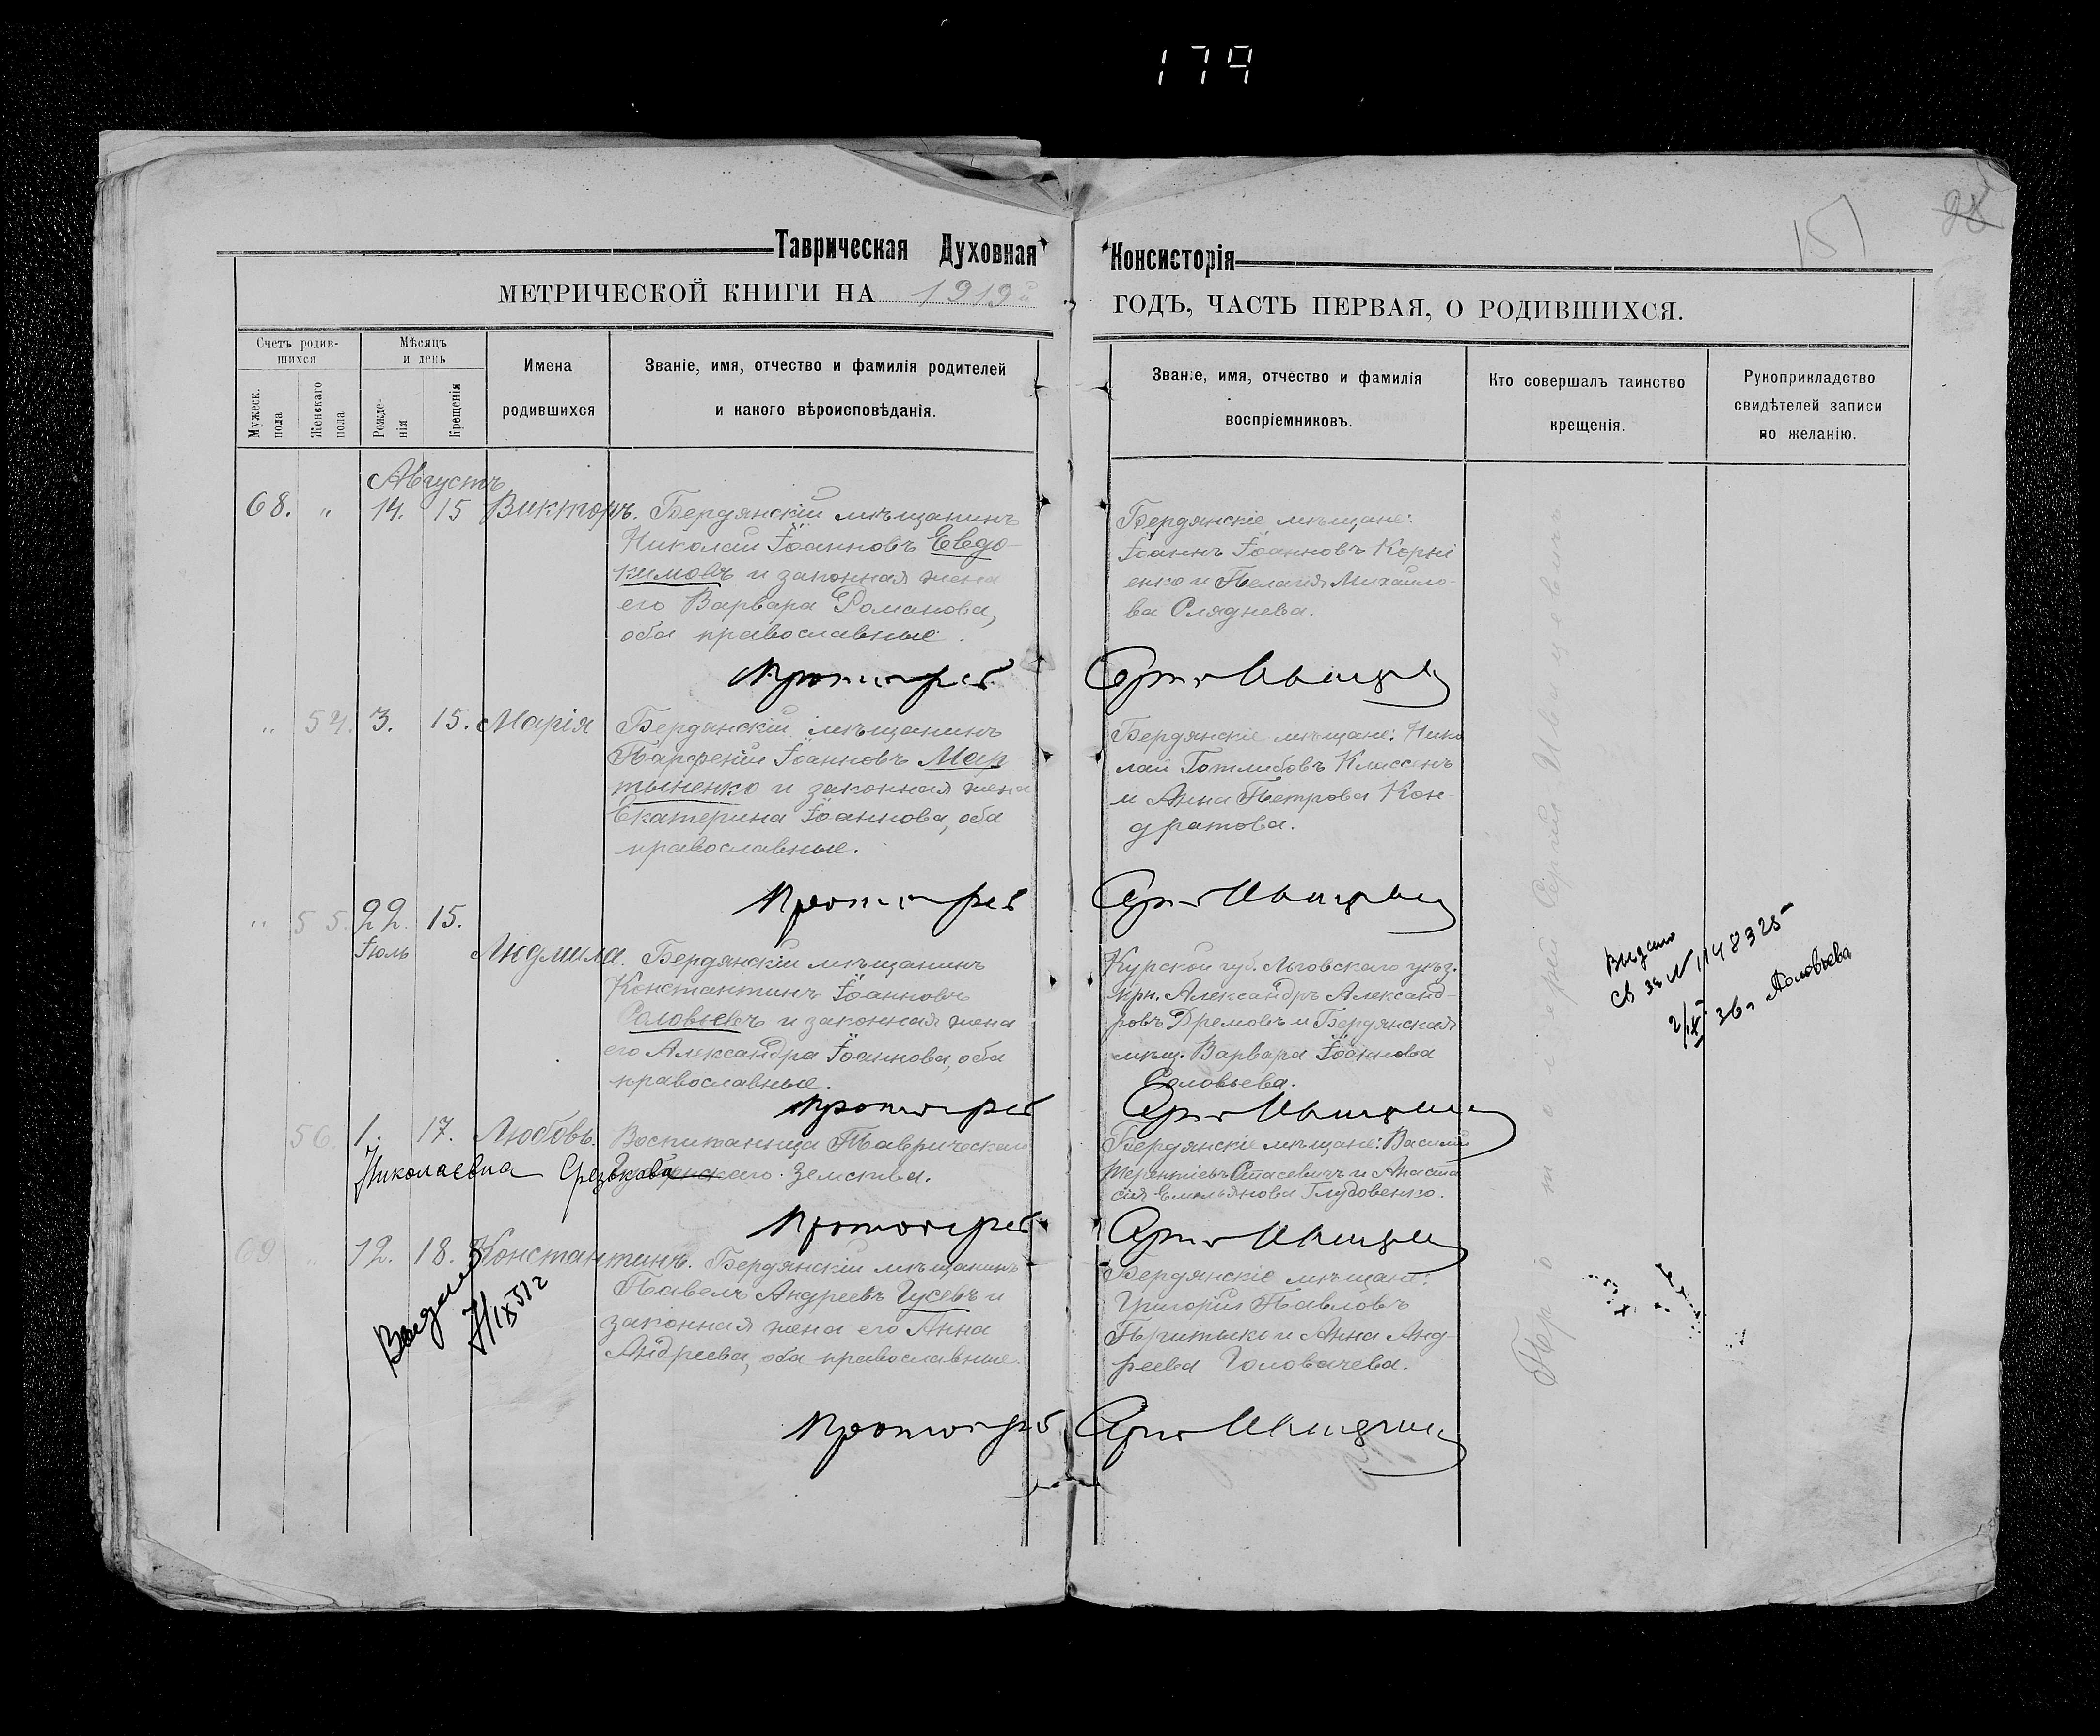 179
151
98
Таврическая Духовная Консисторія
МЕТРИЧЕСКОЙ КНИГИ НА 1919й ГОДЪ, ЧАСТЬ ПЕРВАЯ, О РОДИВШИХСЯ.
Счетъ родив-
шихся
Мужеск.
пола
Женскаго
пола
Мѣсяцъ
и день
Рожде-
нія
Крещенія
Имена
родившихся
Званіе, имя, отчество и фамилія родителей
и какого вѣроисповѣданія.
Званіе, имя, отчество и фамилія
воспріемниковъ.
Кто совершалъ таинство
крещенія.
Рукоприкладство
свидѣтелей записи
по желанію.
Августъ
68. " 14. 15 Викторъ. Бердянскій мѣщанинъ
Николай Іоанновъ Евдо-
кимовъ и законная жена
его Варвара Романова,
оба православные.
Бердянскіе мѣщане:
Іоаннъ Іоанновъ Корні
енко и Пелагія Михайло-
ва Сляднева.
Протоіерей Сергій Иваницкій
" 54. 3. 15. Марія Бердянскій мѣщанинъ
Парфеній Іоанновъ Мар
тыненко и законная жена
Екатерина Іоаннова, оба
православные.
Бердянскіе мѣщане: Нико
лай Готлибовъ Классенъ
и Анна Петрова Кон-
дратова.
Протоіерей Сергій
" 55. 22. 15.
Іюль
Людмила. Бердянскій мѣщанинъ
Константинъ Іоанновъ
Соловьевъ и законная жена
его Александра Іоаннова, оба
православные.
Курской губ. Льговскаго уѣз.
крн. Александръ Александ-
ровъ Дремовъ и Бердянская
мѣщ. Варвара Іоаннова
Соловьева.
Выдано
св за № 1148325
2/XI 36г Соловьева
Протоіерей Сергій
56. 1. 17. Любовь. Воспитанница Таврическаго
Николаевна земства.
Бердянскіе мѣщане: Василій
Терентіевъ Стасевичъ и Анаста
сія Емельянова Глудовенко.
Протоіерей Сергій
69. " 12. 18. Константинъ. Бердянскій мѣщанинъ
Павелъ Андреевъ Гусевъ и
законная жена его Анна
Андреева, оба православные.
Выдано
IX 51г
Бердянскіе мѣщане:
Григорій Павловъ
и Анна Анд-
реева Головачева.
Протоіерей Сергій
Протоіерей Сергій